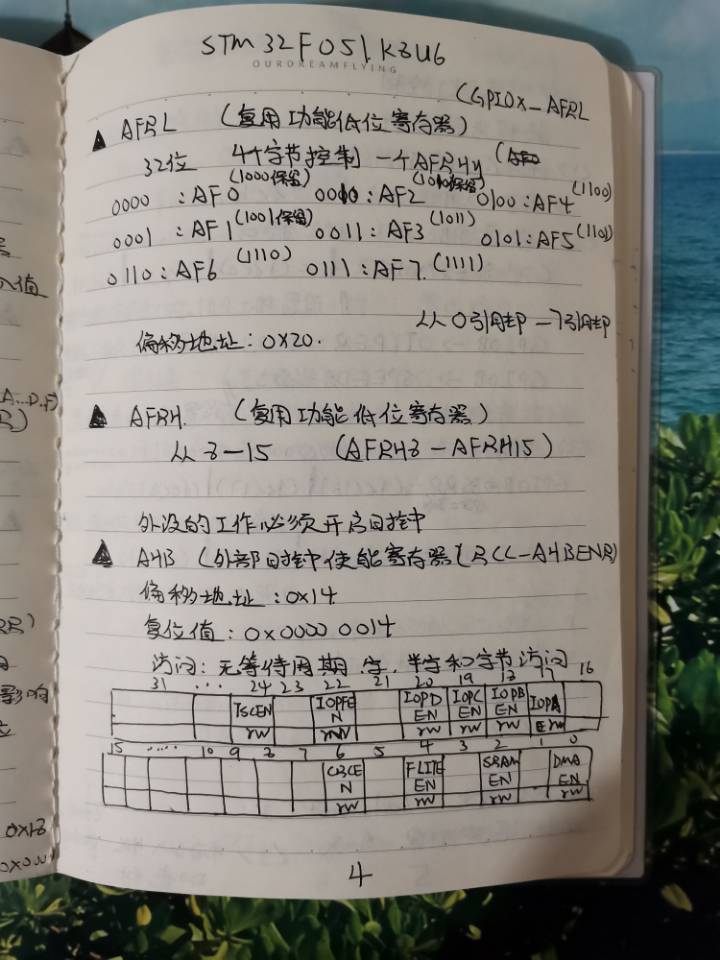 STM32F051K8U6
OURDREAMFLYING
(GPIOx_AFRL
▲ AFRL (复用功能低位寄存器)
32位 4个字节控制一个AFRHy
0000:AF0(1000保留) 0010:AF2(1010保留) 0100:AF4(1100)
0001:AF1(1001保留) 0011:AF3(1011) 0101:AF5(1101)
0110:AF6(1110) 0111:AF7.(1111)
从0引脚—7引脚
偏移地址:0X20.
▲ AFRH. (复用功能低位寄存器)
从8—15 (AFRH8-AFRH15)
外设的工作必须开启时钟
▲ AHB (外部时钟使能寄存器(RCC-AHBENR)
偏移地址:0x14
复位值:0x0000 0014
访问:无等待周期.字.半字和字节访问
31 ... 24 23 22 21 20 19 18 17 16
TSCEN IOPFEN IOPDEN IOPCEN IOPBEN IOPAE
rw rw rw rw rw rw
15 ..... 10 9 8 7 6 5 4 3 2 1 0
CRCEN FLITFEN SRAMEN DMAEN
rw rw rw rw
4
值
影响
位
0x18